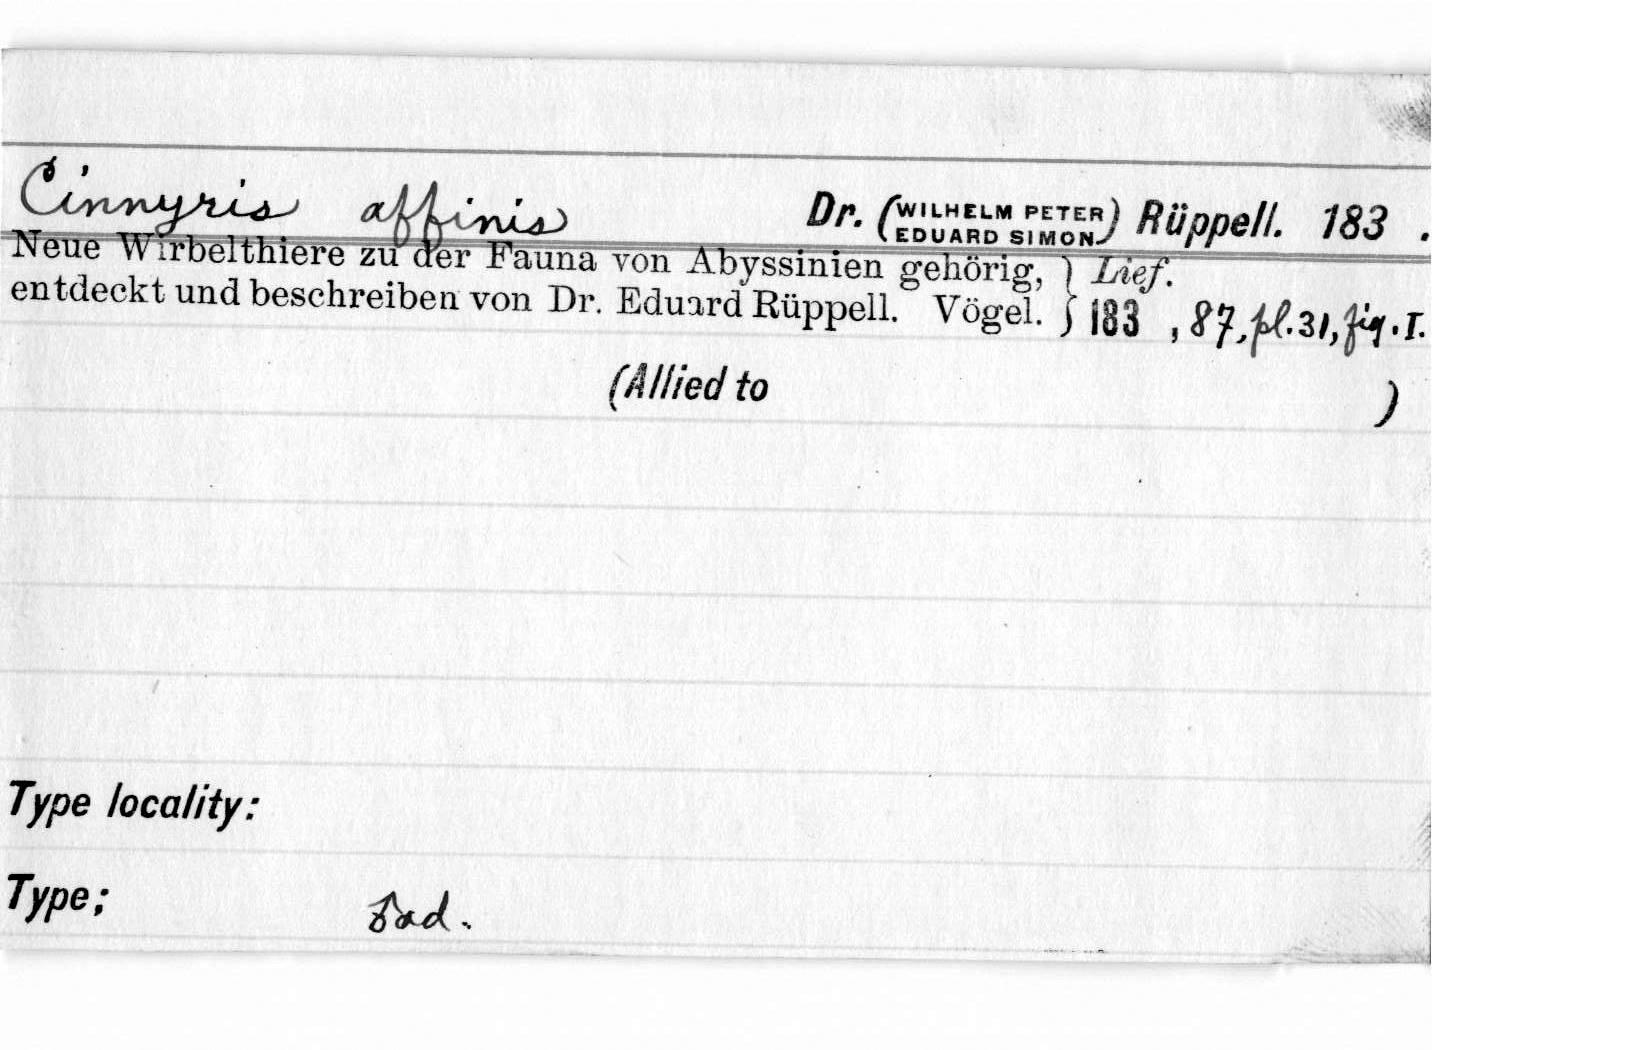 Cinnyris affinis Dr. (WILHELM PETER EDUARD SIMON) Rüppell. 183 .
Neue Wirbelthiere zu der Fauna von Abyssinien gehörig, } Lief.
entdeckt und beschreiben von Dr. Eduard Rüppell. Vögel. } 183 , 87, pl. 31, fig. I.
(Allied to )
Type locality:
Type; ♂ad.